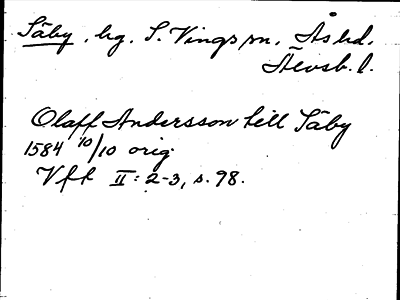 Säby. hg. S. Vings sn. Ås hd.
Älvsb. l.
Olaff Andersson till Säby
1584 10/10 orig.
Vff II: 2-3, s. 98.